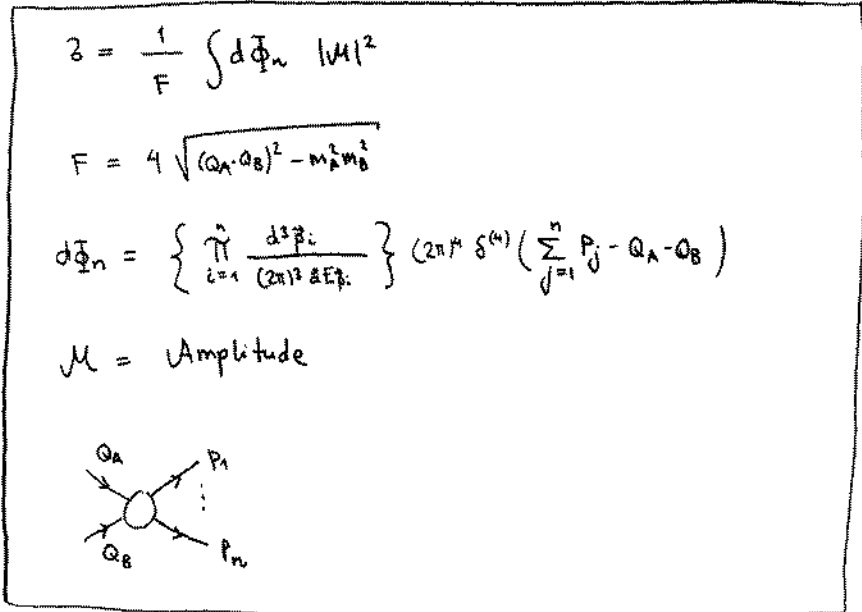 σ = 1/F ∫ dΦₙ |M|²
F = 4 √((Q_A·Q_B)² − m_A² m_B²)
dΦₙ = { ∏_{i=1}^{n} d³p⃗ᵢ / ((2π)³ 2E_{p⃗ᵢ}) } (2π)⁴ δ⁽⁴⁾( ∑_{j=1}^{n} P_j − Q_A − Q_B )
M = Amplitude
Q_A P₁
⋮
Q_B Pₙ